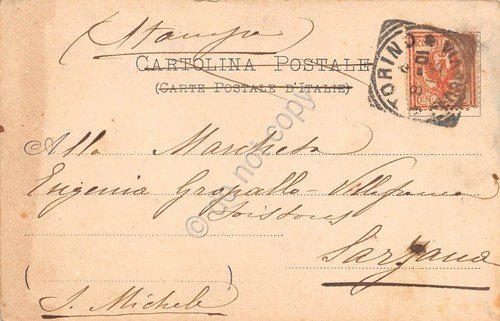 Stampe
CARTOLINA POSTALE
(CARTE POSTALE D'ITALIE)
TORINO
Alla Marchesa
Eugenia Gropallo-Villafranca
Soissons
Sarzana
(S. Michele)
do not copy